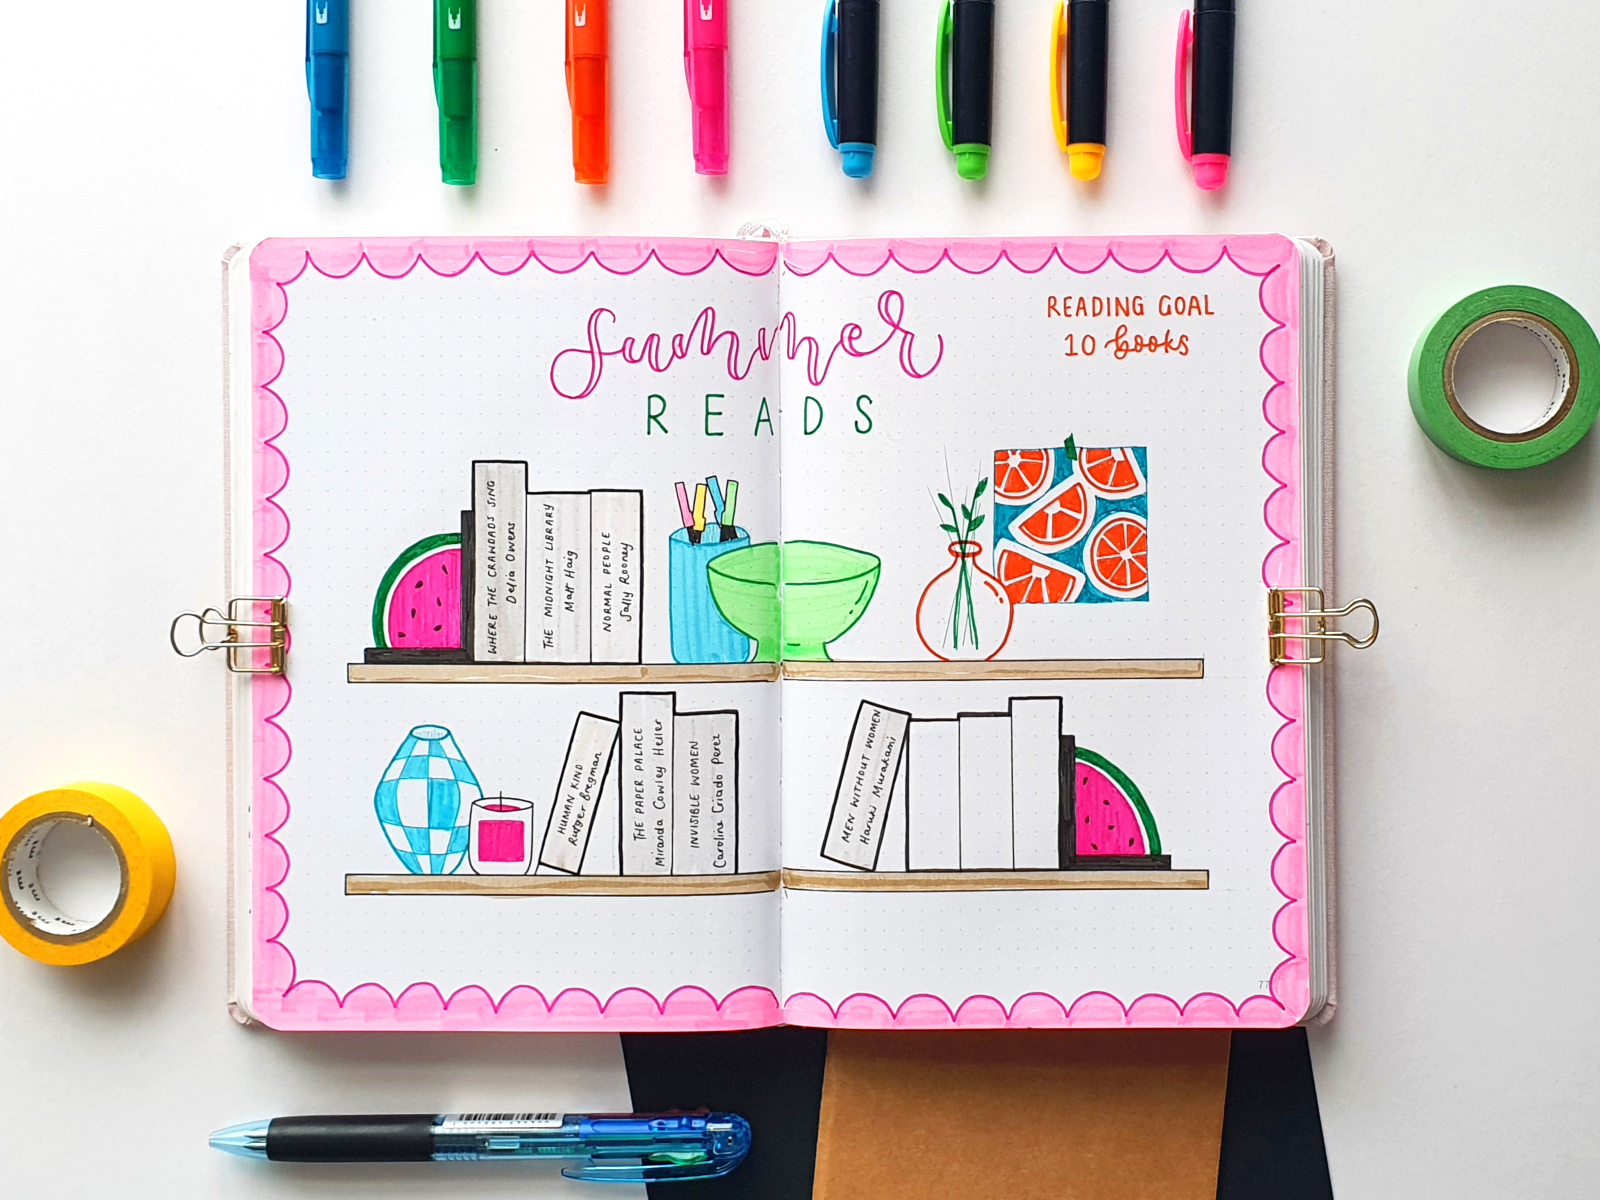 Summer
READS
READING GOAL
10 books
WHERE THE CRAWDADS SING
Delia Owens
THE MIDNIGHT LIBRARY
Matt Haig
NORMAL PEOPLE
Sally Rooney
HUMAN KIND
Rutger Bregman
THE PAPER PALACE
Miranda Cowley Heller
INVISIBLE WOMEN
Caroline Criado Perez
MEN WITHOUT WOMEN
Haruki Murakami
77
mt mt mt mt